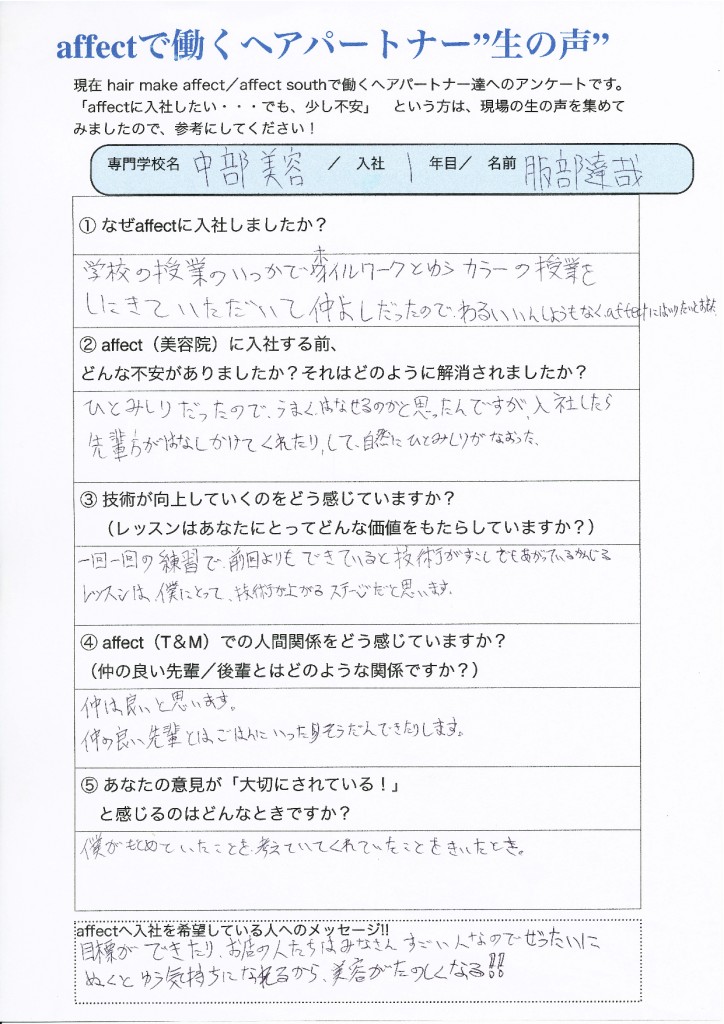 affectで働くヘアパートナー”生の声”
現在 hair make affect／affect southで働くヘアパートナー達へのアンケートです。
「affectに入社したい・・・でも、少し不安」　という方は、現場の生の声を集めて
みましたので、参考にしてください！
専門学校名 中部美容 ／ 入社 1 年目／ 名前 服部達哉
① なぜaffectに入社しましたか？
学校の授業のいっかでホイルワークとゆうカラーの授業を
しにきていただいて仲よしだったので、わるいいんしょうもなく、affectにはいりたいとおもった
② affect（美容院）に入社する前、
どんな不安がありましたか？それはどのように解消されましたか？
ひとみしりだったので、うまくはなせるのかと思ったんですが、入社したら
先輩方がはなしかけてくれたり、して、自然にひとみしりがなおった、
③ 技術が向上していくのをどう感じていますか？
（レッスンはあなたにとってどんな価値をもたらしていますか？）
一回一回の練習で、前回よりもできていると技術がすこしでもあがっているかんじる
レッスンは、僕にとって、技術が上がるステージだと思います。
④ affect（T＆M）での人間関係をどう感じていますか？
（仲の良い先輩／後輩とはどのような関係ですか？）
仲は良いと思います。
仲の良い先輩とは、ごはんにいったりそうだんできたりします。
⑤ あなたの意見が「大切にされている！」
と感じるのはどんなときですか？
僕がもとめていたことを考えていてくれていたことをきいたとき。
affectへ入社を希望している人へのメッセージ!!
目標ができたり、お店の人たちはみなさんすごい人なのでぜったいに
ぬくとゆう気持ちになれるから、美容がたのしくなる!!